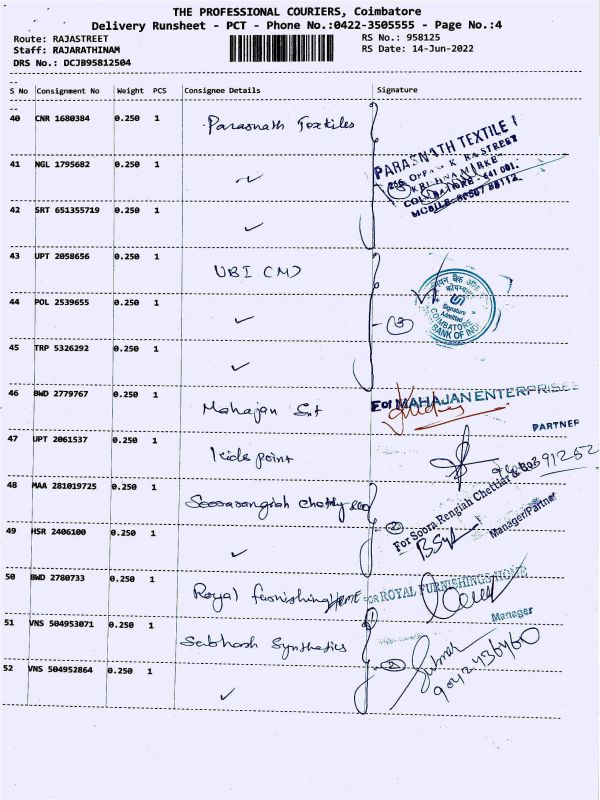 THE PROFESSIONAL COURIERS, Coimbatore
Delivery Runsheet - PCT - Phone No.:0422-3505555 - Page No.:4
Route: RAJASTREET RS No.: 958125
Staff: RAJARATHINAM RS Date: 14-Jun-2022
DRS No.: DCJB95812504
S No Consignment No Weight PCS Consignee Details Signature
40 CNR 1680384 0.250 1 Parasnath Textiles
PARASNATH TEXTILE
41 NGL 1795682 0.250 1
42 SRT 651355719 0.250 1
43 UPT 2058656 0.250 1 UBI (M)
44 POL 2539655 0.250 1 3
Signature
Admitted
COIMBATORE
45 TRP 5326292 0.250 1
46 BWD 2779767 0.250 1 Mahajan Ent For MAHAJAN ENTERPRISES
PARTNER
47 UPT 2061537 0.250 1 kids point
48 MAA 281019725 0.250 1
For Soora Rengiah Chettiar & Co
Manager/Partner
49 HSR 2406100 0.250 1 2
50 BWD 2780733 0.250 1 Royal furnishing HOME FOR ROYAL FURNISHINGS HOME
Manager
51 VNS 504953071 0.250 1 Subhash Synthetics
52 VNS 504952864 0.250 1 2